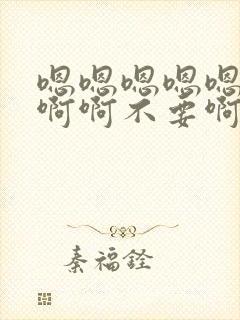 嗯嗯嗯嗯嗯
啊啊不要啊
秦福铨